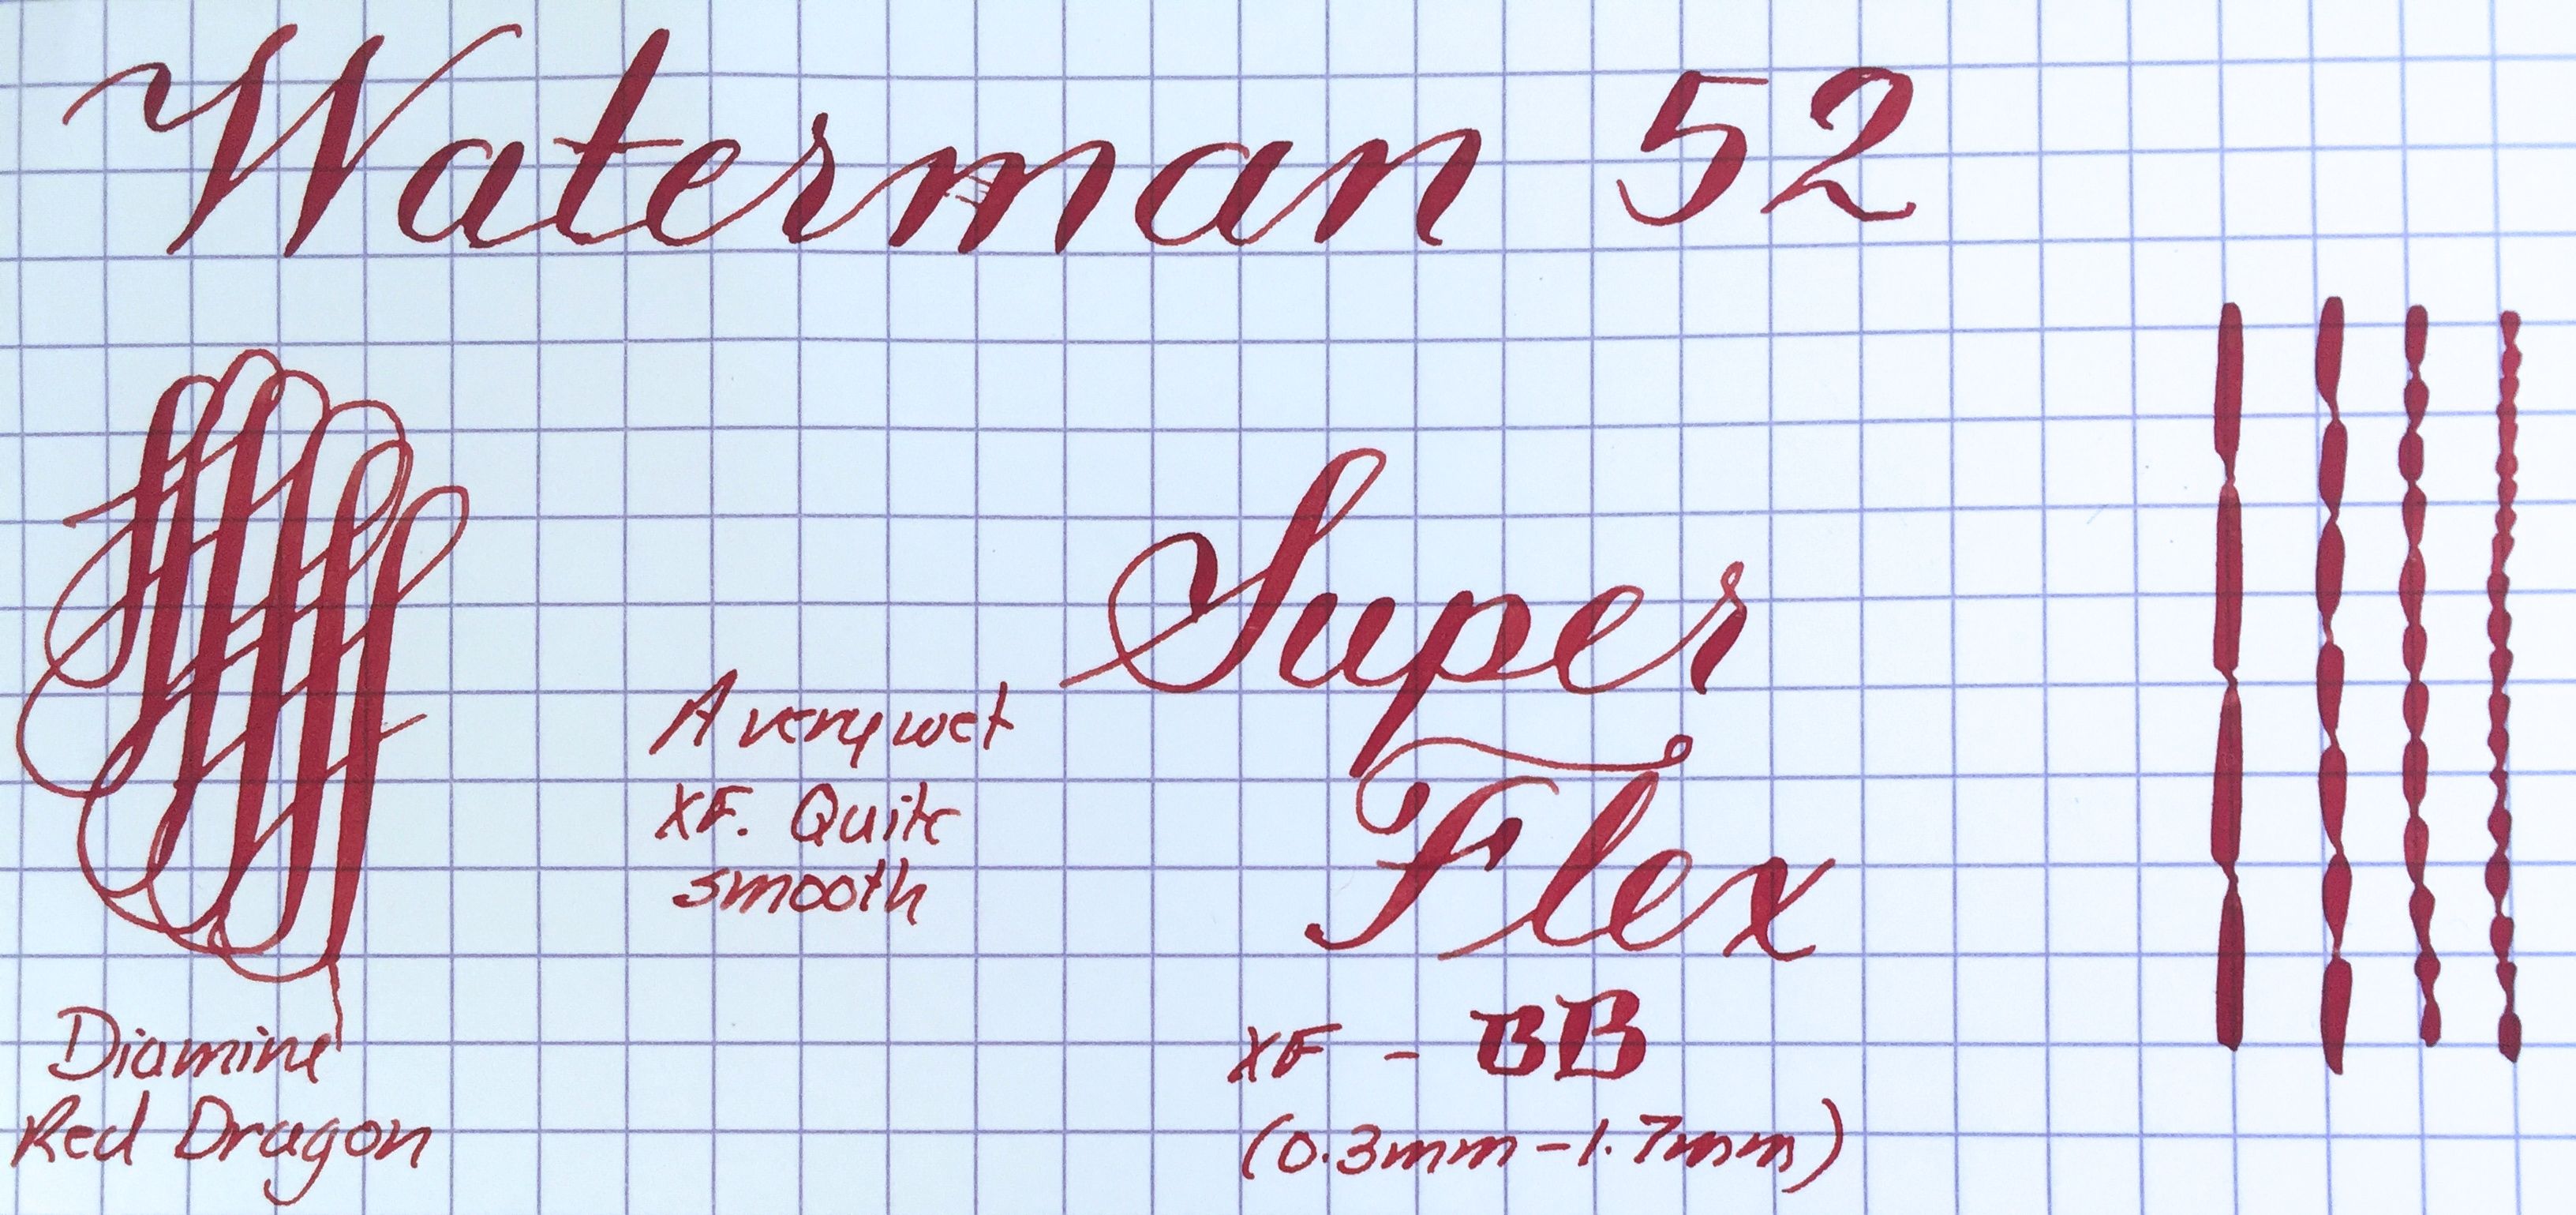 Waterman 52
Super
Flex
A very wet
XF. Quite
smooth
XF - BB
(0.3mm-1.7mm)
Diamine
Red Dragon